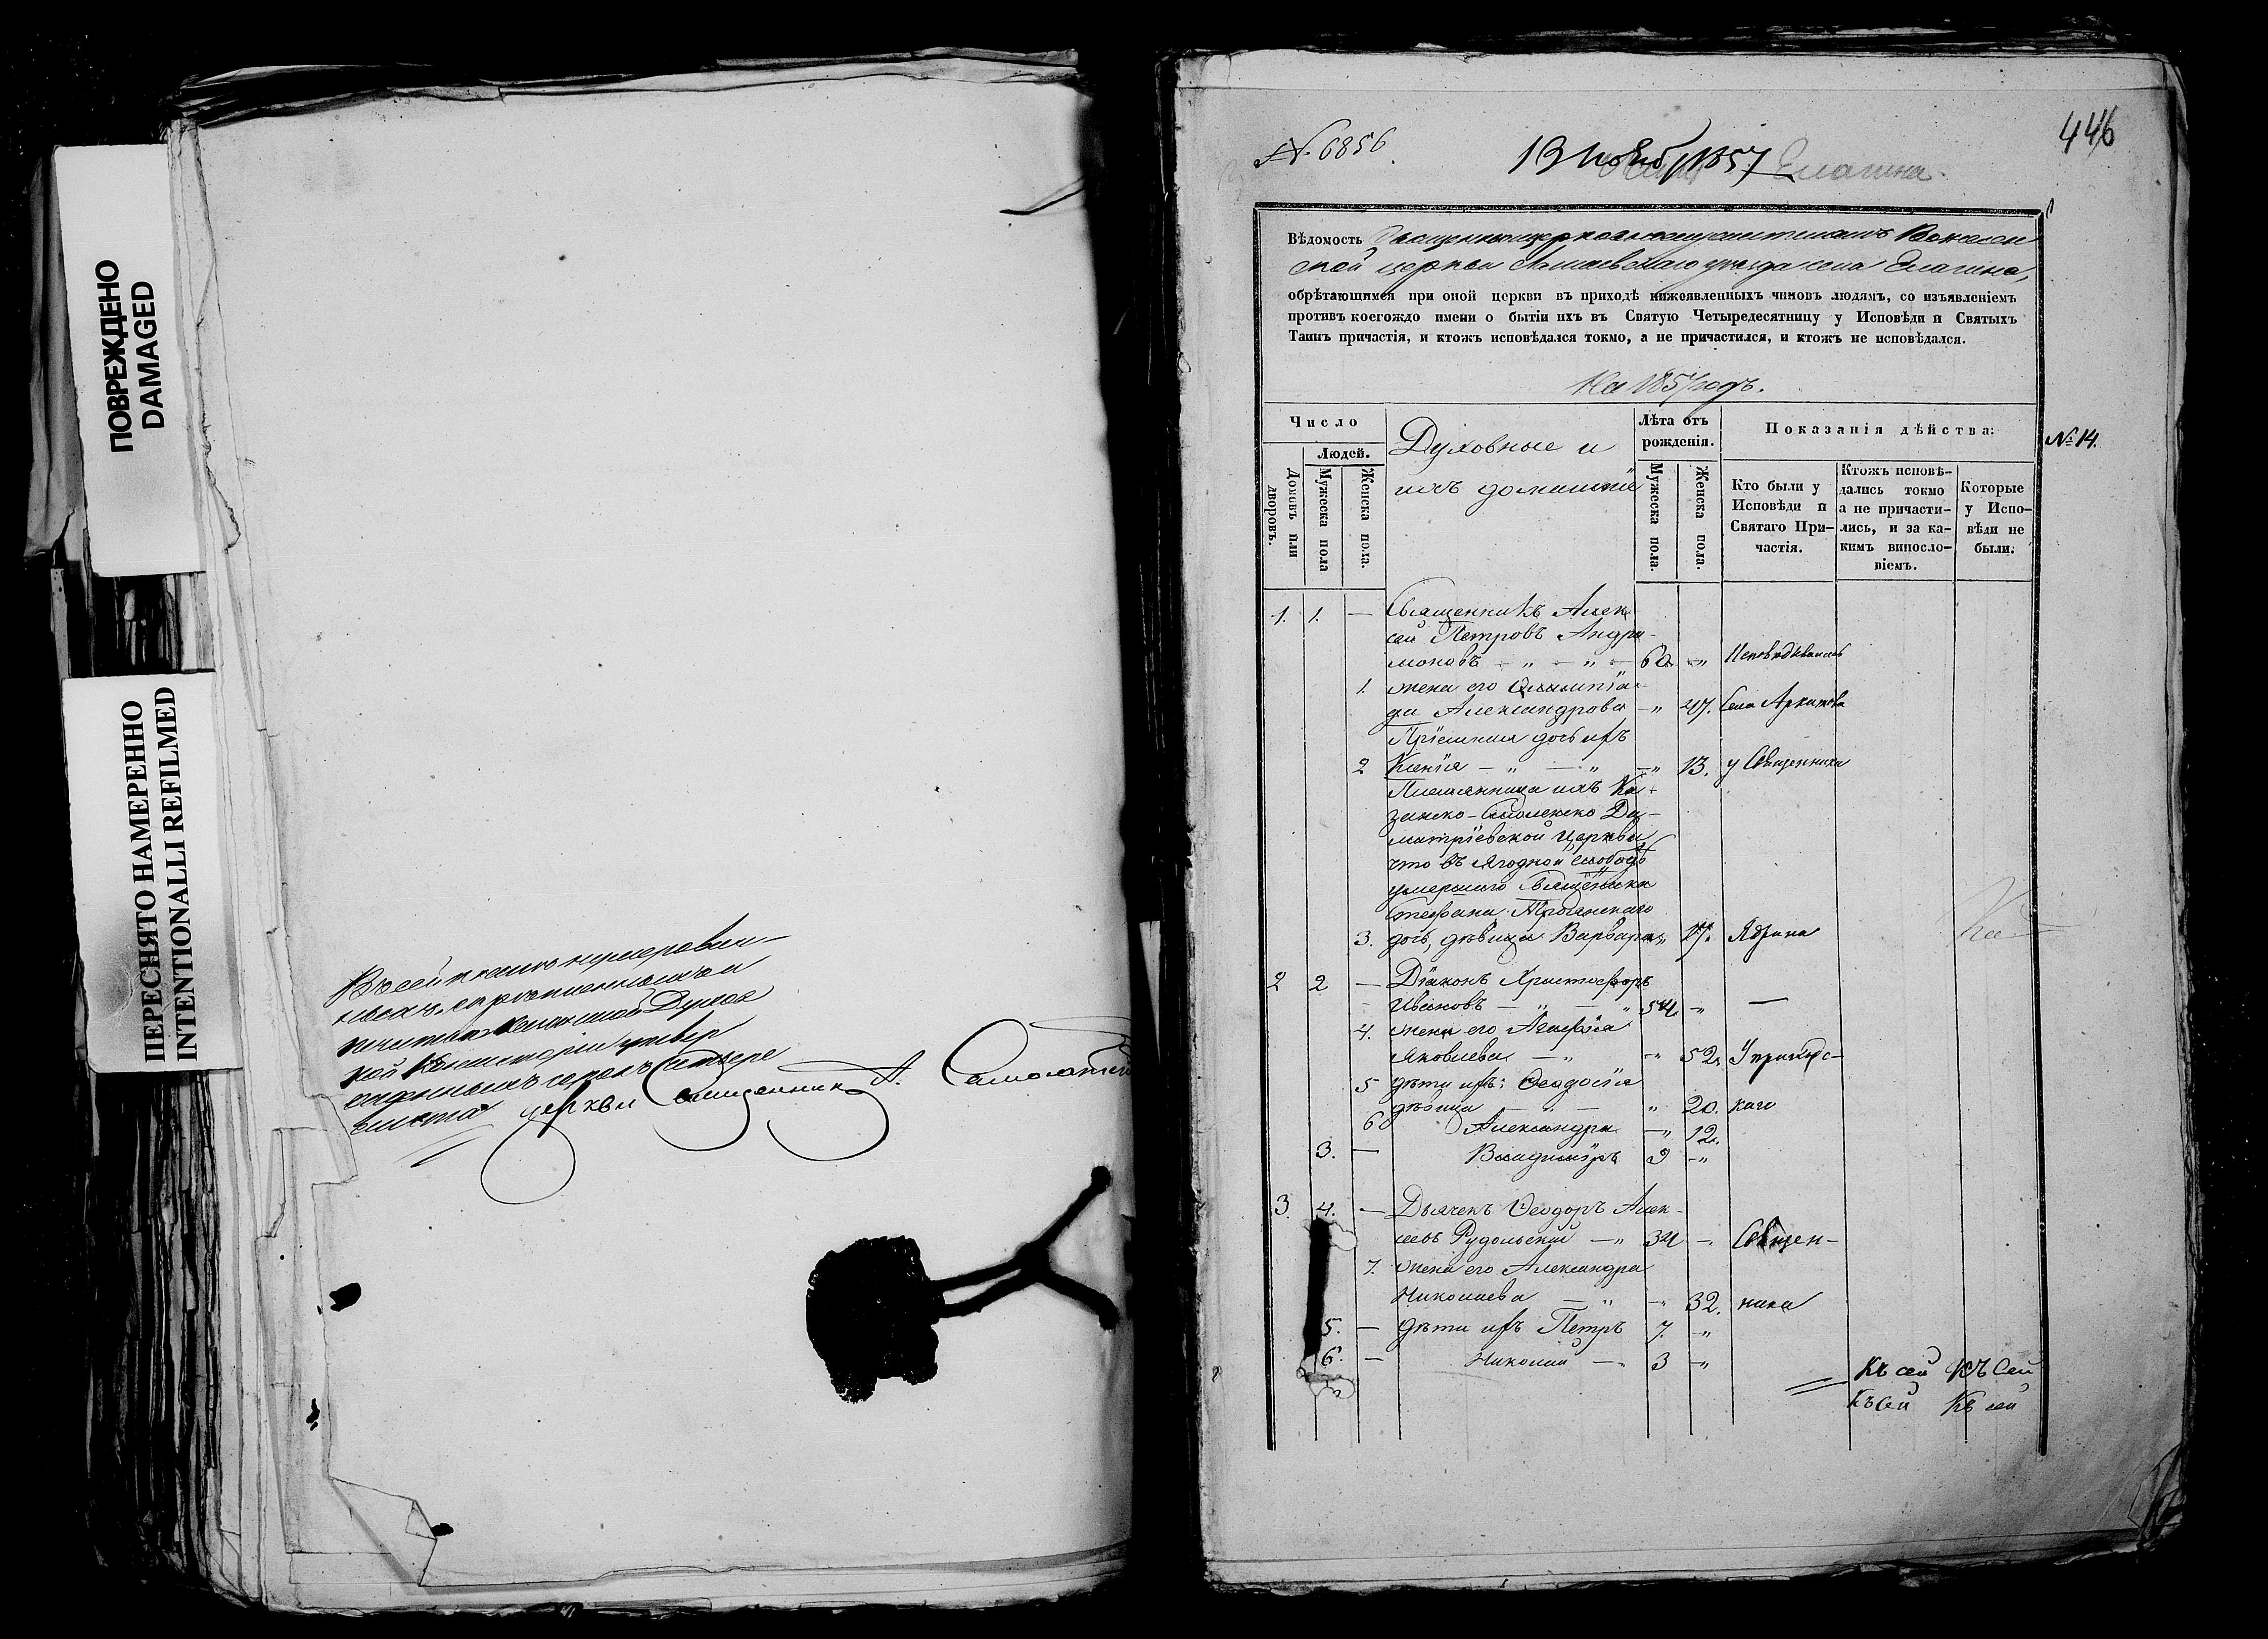 ПОВРЕЖДЕНО
DAMAGED
ПЕРЕСНЯТО НАМЕРЕННО
INTENTIONALLI REFILMED
Въ сей
печатью Духов
кой Консисторіи
сорокъ четыре
листа церкви Священникъ А.
446
№ 6856
13 Нояб 1857 Елагина
Вѣдомость Священноцерковнослужителямъ Вознесен
ской церкви Лаишевскаго уѣзда села Елагина,
обрѣтающимся при оной церкви въ приходѣ нижеявленныхъ чиновъ людямъ, со изъявленіемъ
противъ коегождо имени о бытіи ихъ въ Святую Четыредесятницу у Исповѣди и Святыхъ
Таинъ причастія, и ктожъ исповѣдался токмо, а не причастился, и ктожъ не исповѣдался.
На 1857 годъ.
Число
Людей.
Домовъ или дворовъ.
Мужеска пола
Женска пола.
Духовные и
ихъ домашніе
Лѣта отъ рожденія.
Мужеска пола.
Женска пола.
Показанія дѣйства:
Кто были у Исповѣди и Святаго При-частія.
Ктожъ исповѣ-дались токмо а не причасти-лись, и за ка-кимъ винosло-віемъ.
Которые у Испо-вѣди не были.
№ 14.
1. 1. — Священникъ Алек
сей Петровъ Андри-
моновъ — „ — „ — 60 — „ Исповѣдывались
1. жена его Олимпіа-
да Александрова — „ 47. Села
Пріемная дочь ихъ
2 Ксенія — „ — „ — „ 13. у Священника
Племянница ихъ Ка-
занско-Смоленско Ди-
митріевской церкви,
что въ Ягодной слободѣ
умершаго Священника
Стефана Троянскаго
3. дочь, дѣвица Варвара „ 17. Ядрина
2 2 — Діаконъ Христофоръ
Ивановъ — „ — „ 54. — „ —
4. жена его Агафія
Яковлева — „ — „ 52. У приходс-
5 дѣти ихъ: Ѳеодосія
дѣвица — „ — „ 20. каго
6 Александра — „ 12.
3. — Владиміръ 9 — „
3. 4. — Дьячекъ Ѳеодоръ Алек-
сеевъ Рудольскій — „ 34 — „ Священ-
7. жена его Александра
Николаева — „ — „ 32. ника
5. — дѣти ихъ Петръ 7. — „
6. — Николай — „ 3 — „
Къ сей Къ Сей
Къ Сей Къ сей